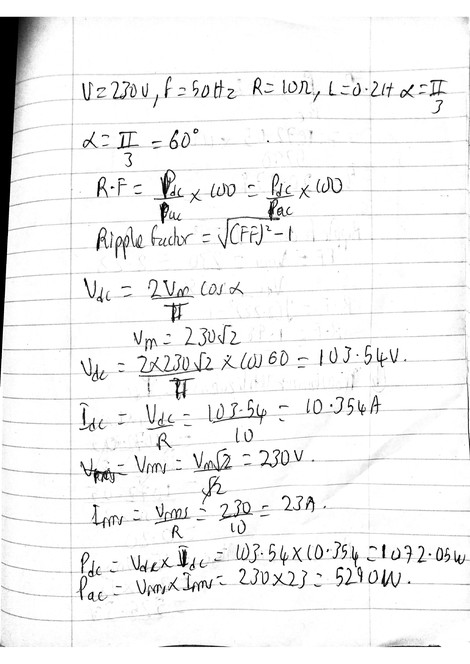 V = 230V, f = 50Hz R = 10Ω, L = 0.2H α = π/3
α = π/3 = 60°
R.F = Pdc/Pac × 100 = Pdc/Pac × 100
Ripple factor = √(FF)² - 1
Vdc = 2Vm/π cos α
Vm = 230√2
Vdc = 2×230√2/π × cos 60 = 103.54V.
Idc = Vdc/R = 103.54/10 = 10.354A
Vrms = Vrms = Vm√2/√2 = 230V.
Irms = Vrms/R = 230/10 = 23A.
Pdc = Vdc × Idc = 103.54 × 10.354 = 1072.05W
Pac = Vrms × Irms = 230 × 23 = 5290W.